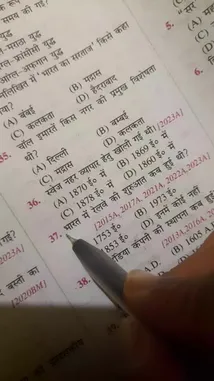 समय की गई?
युद्ध
-मराठा युद्ध
आंग्ल-फ्रांसीसी युद्ध
आंग्ल-अफगान युद्ध
निम्नलिखित में 'भारत का सरताज' किसे कहा
गया?
(A) बंबई
(B) मद्रास
(C) कलकत्ता
(D) हैदराबाद
चॉल इमारतें किस नगर की प्रमुख विशेषता
थी?
(A) दिल्ली
(B) बम्बई
(C) मद्रास
(D) कलकत्ता
35.
स्वेज नहर व्यापार हेतु खोली गई थी। [2023A]
36.
(A) 1870 ई० में
(B) 1869 ई० में
(C) 1878 ई० में
(D) 1860 ई० में
भारत में रेलवे की शुरुआत कब हुई थी?
[2015A, 2017A, 2021A, 2022A, 2023A]
37.
1753 ई०
(B) 1973 ई०
1853 ई०
(D) इनमें कोई नहीं
इंडिया कंपनी की स्थापना कब हुई
[2013A, 2016A
A.D.
(B) 1605 A
38.
गई?
2023A]
बस्ती का
[2020BM]